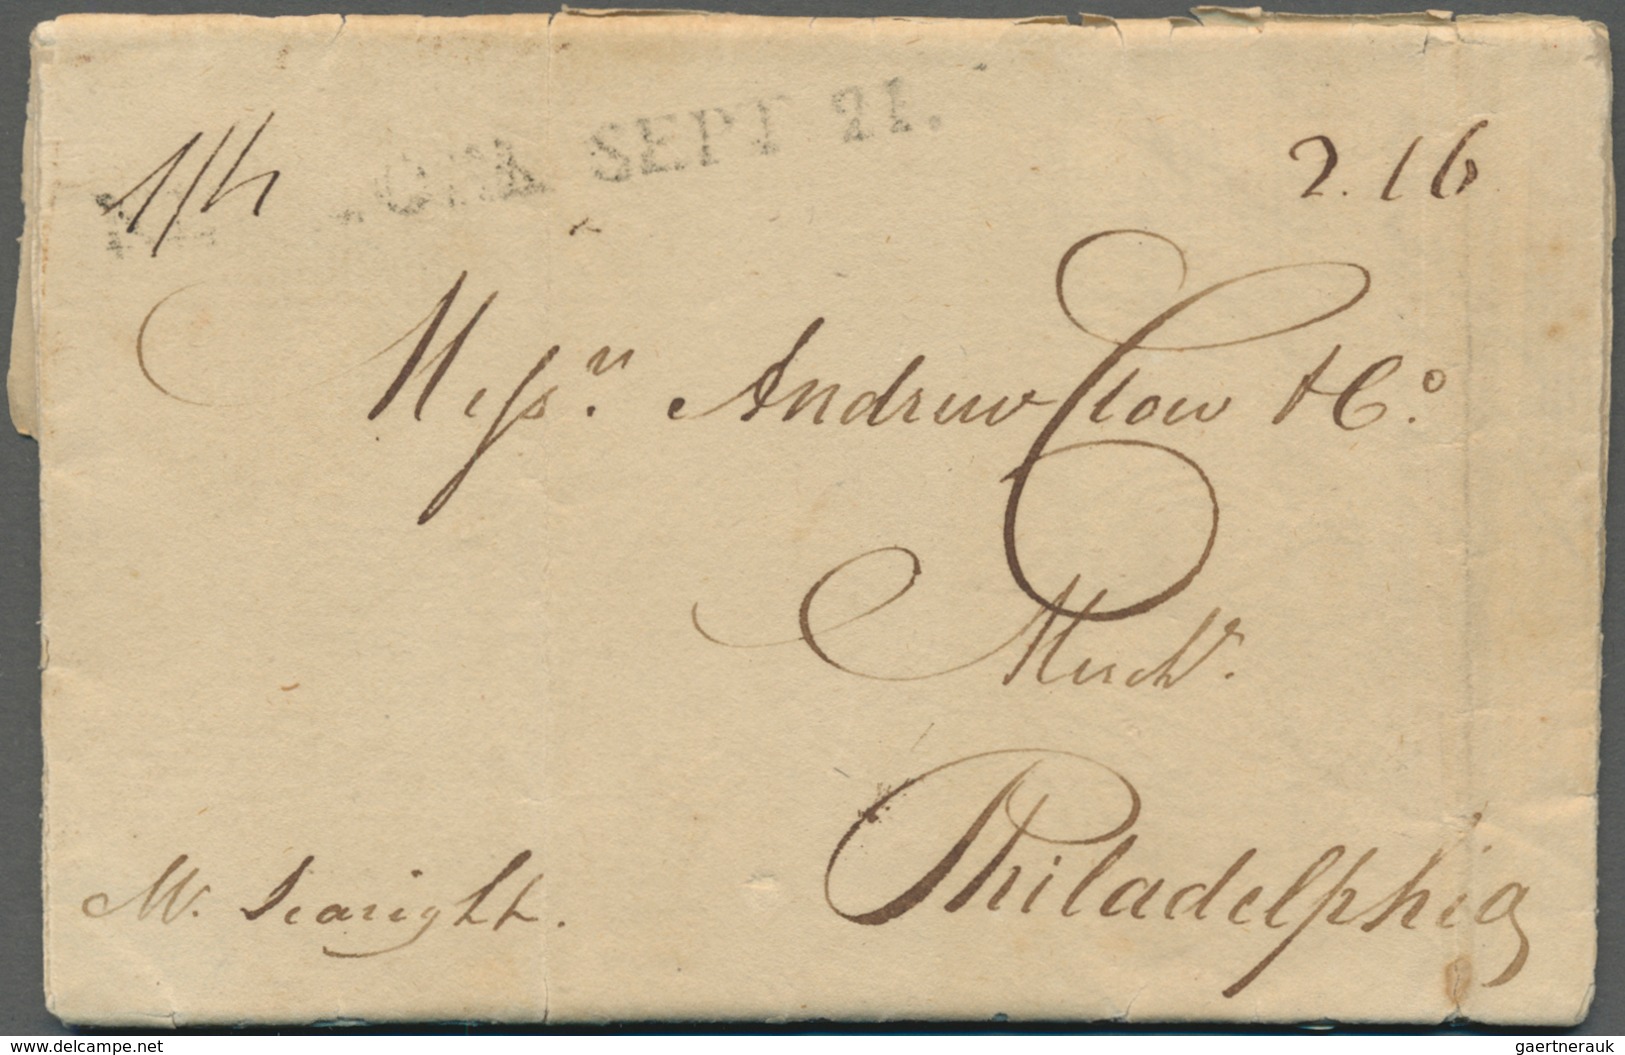 SEPT 21.
2.16
Messrs. Andrew Clow & Co.
Mercht.
Philadelphia
Mr. Searight.
www.delcampe.net
gaertnerauk